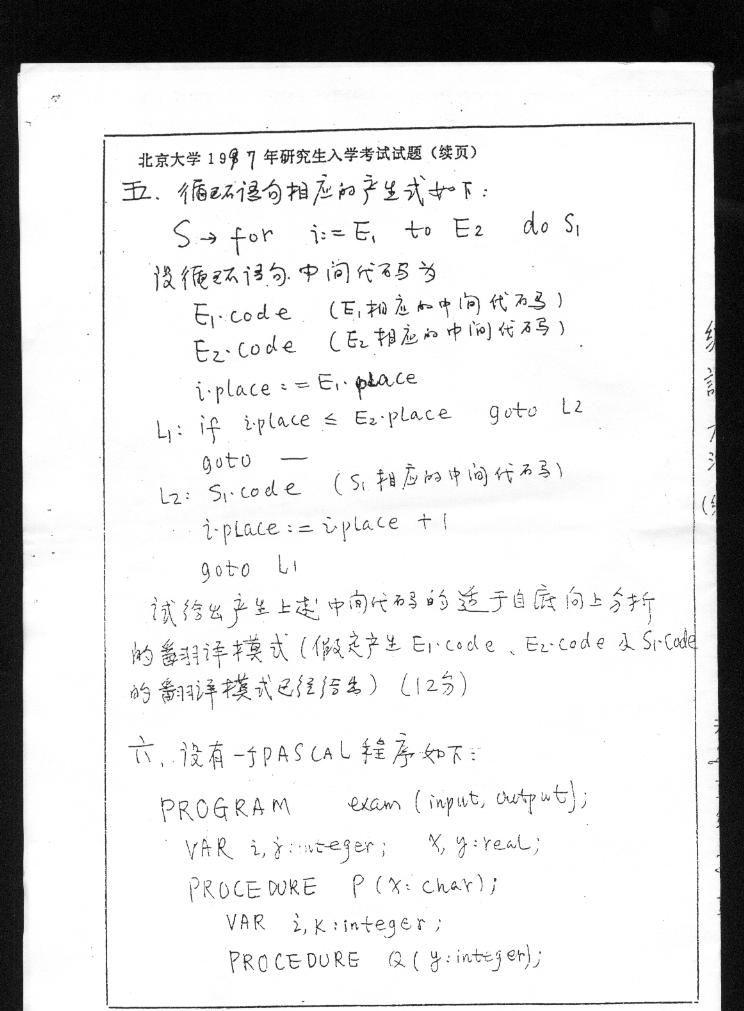 北京大学1997年研究生入学考试试题（续页）
五、循环语句相应的产生式如下：
S→for i:=E1 to E2 do S1
设循环语句中间代码为
E1.code （E1相应的中间代码）
E2.code （E2相应的中间代码）
i.place:=E1.place
L1: if i.place ≤ E2.place goto L2
goto —
L2: S1.code （S1相应的中间代码）
i.place:=i.place +1
goto L1
试给出产生上述中间代码的适于自底向上分析
的翻译模式（假定产生E1.code、E2.code及S1.code
的翻译模式已经给出）（12分）
六、设有一个PASCAL程序如下：
PROGRAM exam (input, output);
VAR i, j:integer; x, y:real;
PROCEDURE P(x: char);
VAR i, k:integer;
PROCEDURE Q(y:integer);